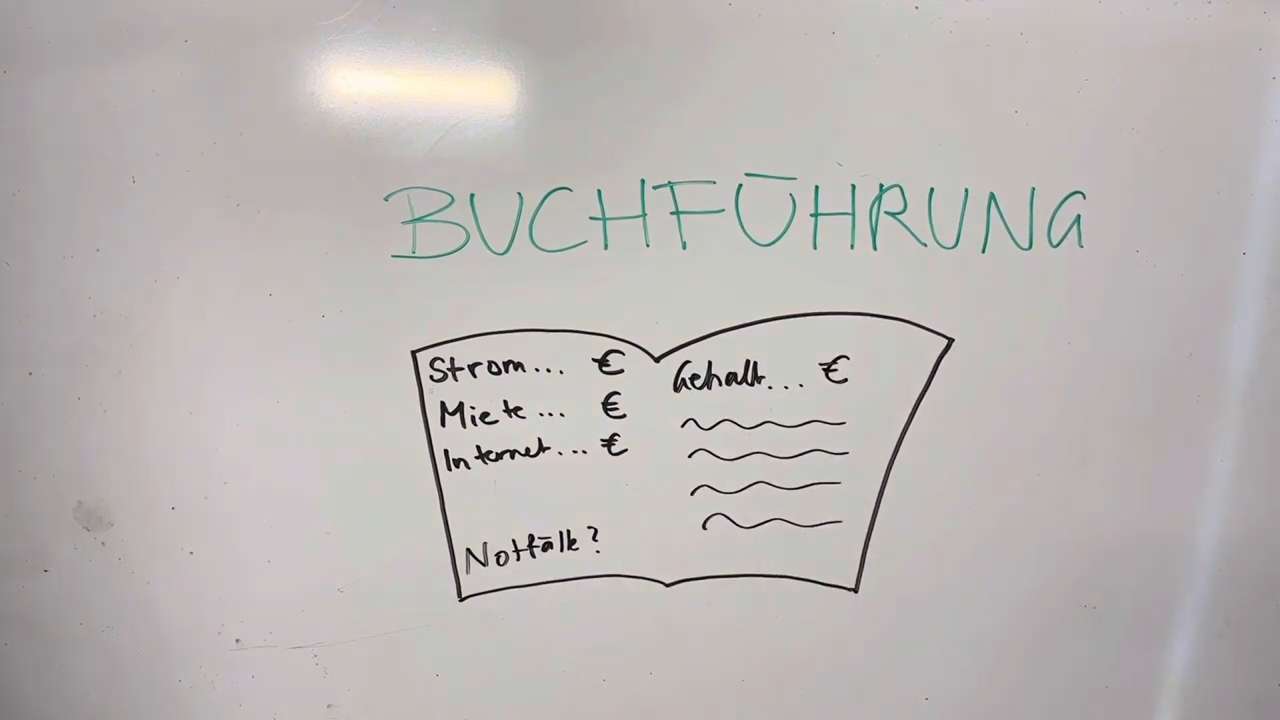 BUCHFÜHRUNG
Strom... €
Miete... €
Internet... €
Notfälle?
Gehalt... €